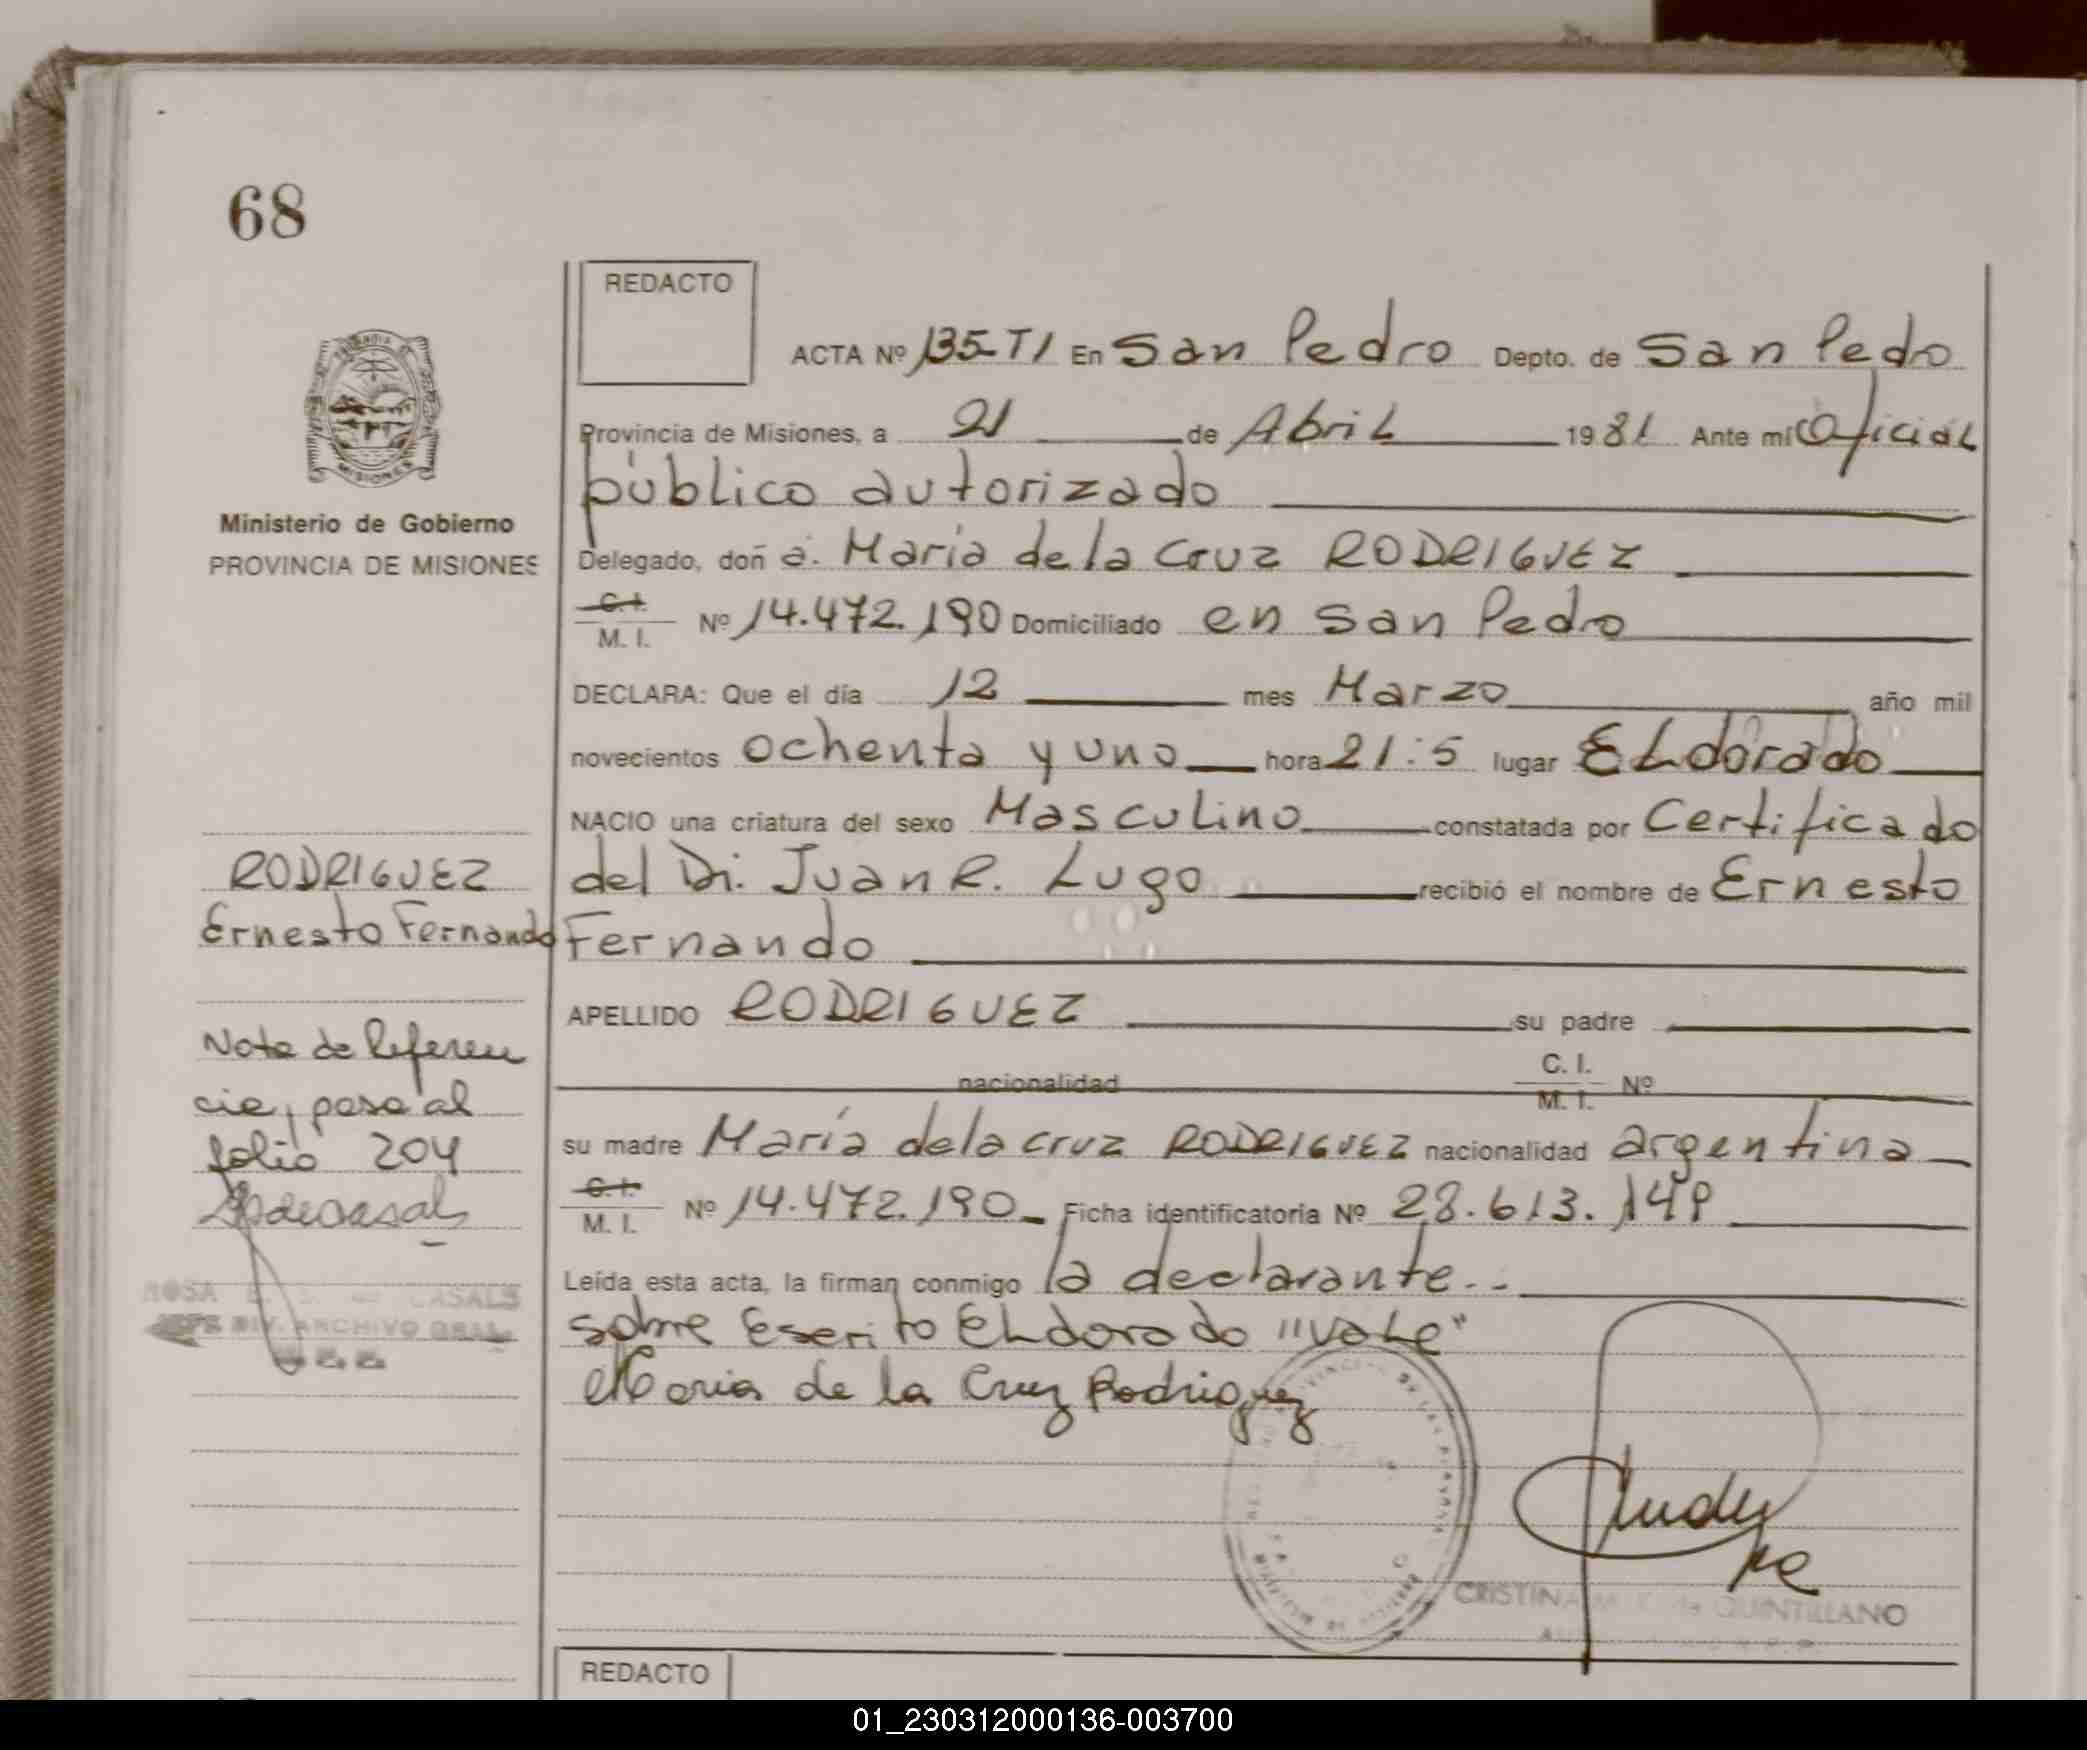 68
REDACTO
ACTA Nº 135-TI En San Pedro Depto. de San Pedro
Provincia de Misiones, a 21 de Abril 1981 Ante mi Oficial
público autorizado
Ministerio de Gobierno
PROVINCIA DE MISIONES
Delegado, doñ a. María de la Cruz RODRIGUEZ
C.I. M. I. Nº 14.472.190 Domiciliado en San Pedro
DECLARA: Que el día 12 mes Marzo año mil
novecientos ochenta y uno hora 21:5 lugar ELdorado
NACIO una criatura del sexo Masculino constatada por Certificado
del Dr. Juan R. Lugo recibió el nombre de Ernesto
Fernando
RODRIGUEZ
Ernesto Fernando
APELLIDO RODRIGUEZ su padre
nacionalidad C. I. M. I. Nº
su madre María de la Cruz RODRIGUEZ nacionalidad argentina
C.I. M. I. Nº 14.472.190 Ficha identificatoria Nº 28.613.149
Leída esta acta, la firman conmigo la declarante..
sobre Escrito ELdorado "VaLe"
Maria de la Cruz Rodriguez
Nota de Referen
cia, pasa al
folio 204
ROSA CASALS
JEFE DIV. ARCHIVO GRAL.
CRISTINA QUINTILLANO
REDACTO
01_230312000136-003700